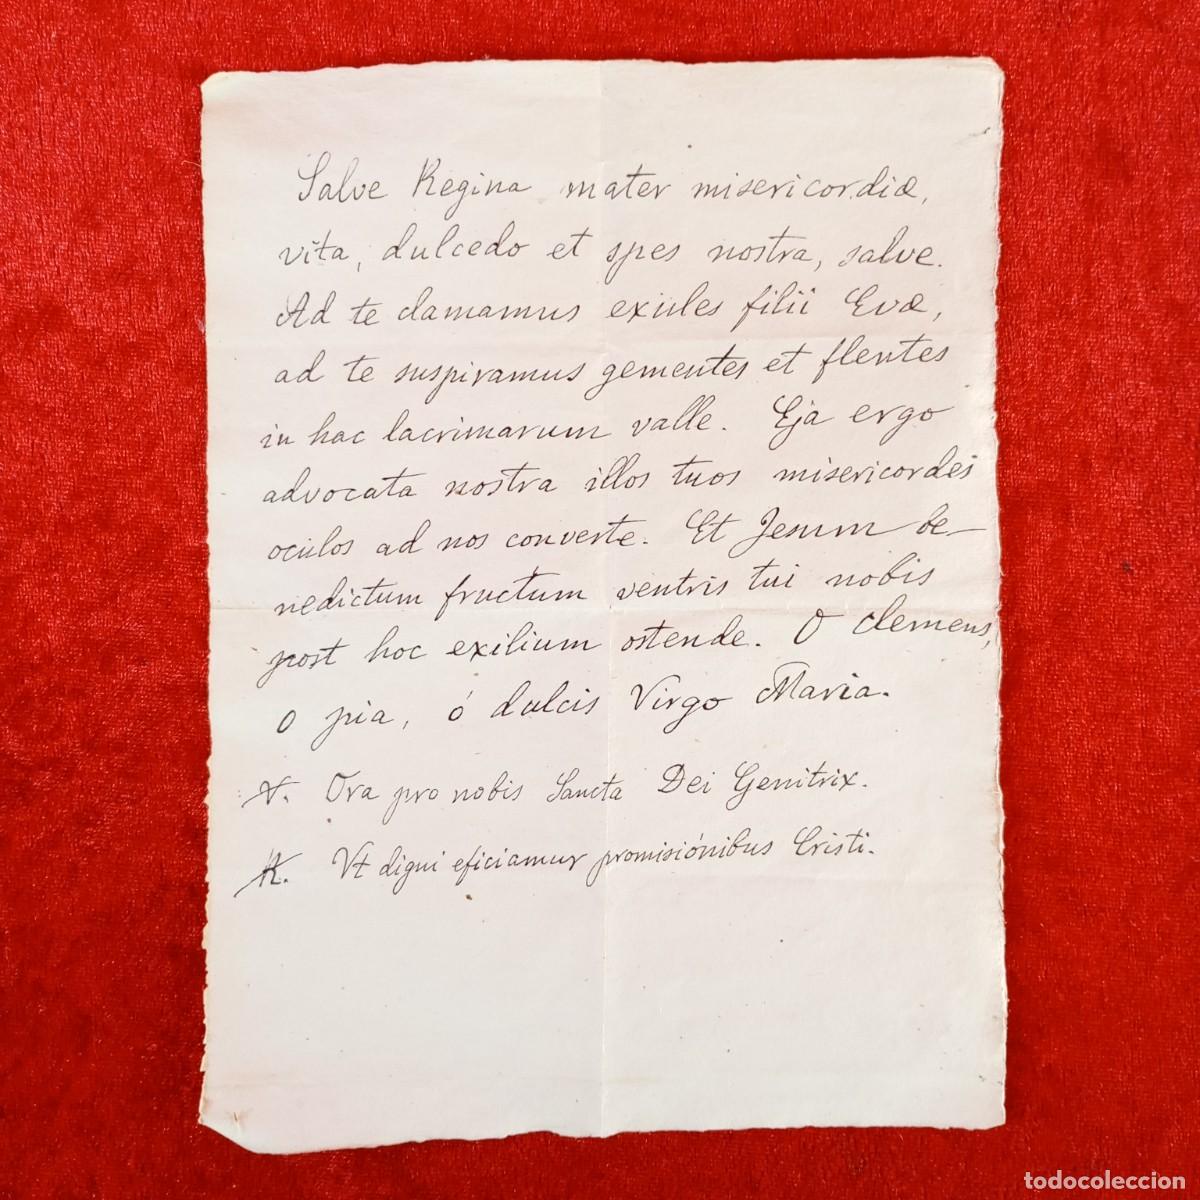 Salve Regina mater misericordiæ,
vita, dulcedo et spes nostra, salve.
Ad te clamamus exules filii Evæ,
ad te suspiramus gementes et flentes
in hac lacrimarum valle. Eja ergo
advocata nostra illos tuos misericordes
oculos ad nos converte. Et Jesum be-
nedictum fructum ventris tui nobis
post hoc exilium ostende. O clemens,
o pia, ó dulcis Virgo Maria.
℣. Ora pro nobis Sancta Dei Genitrix.
℟. Vt digni eficiamur promisiónibus Cristi.
todocoleccion